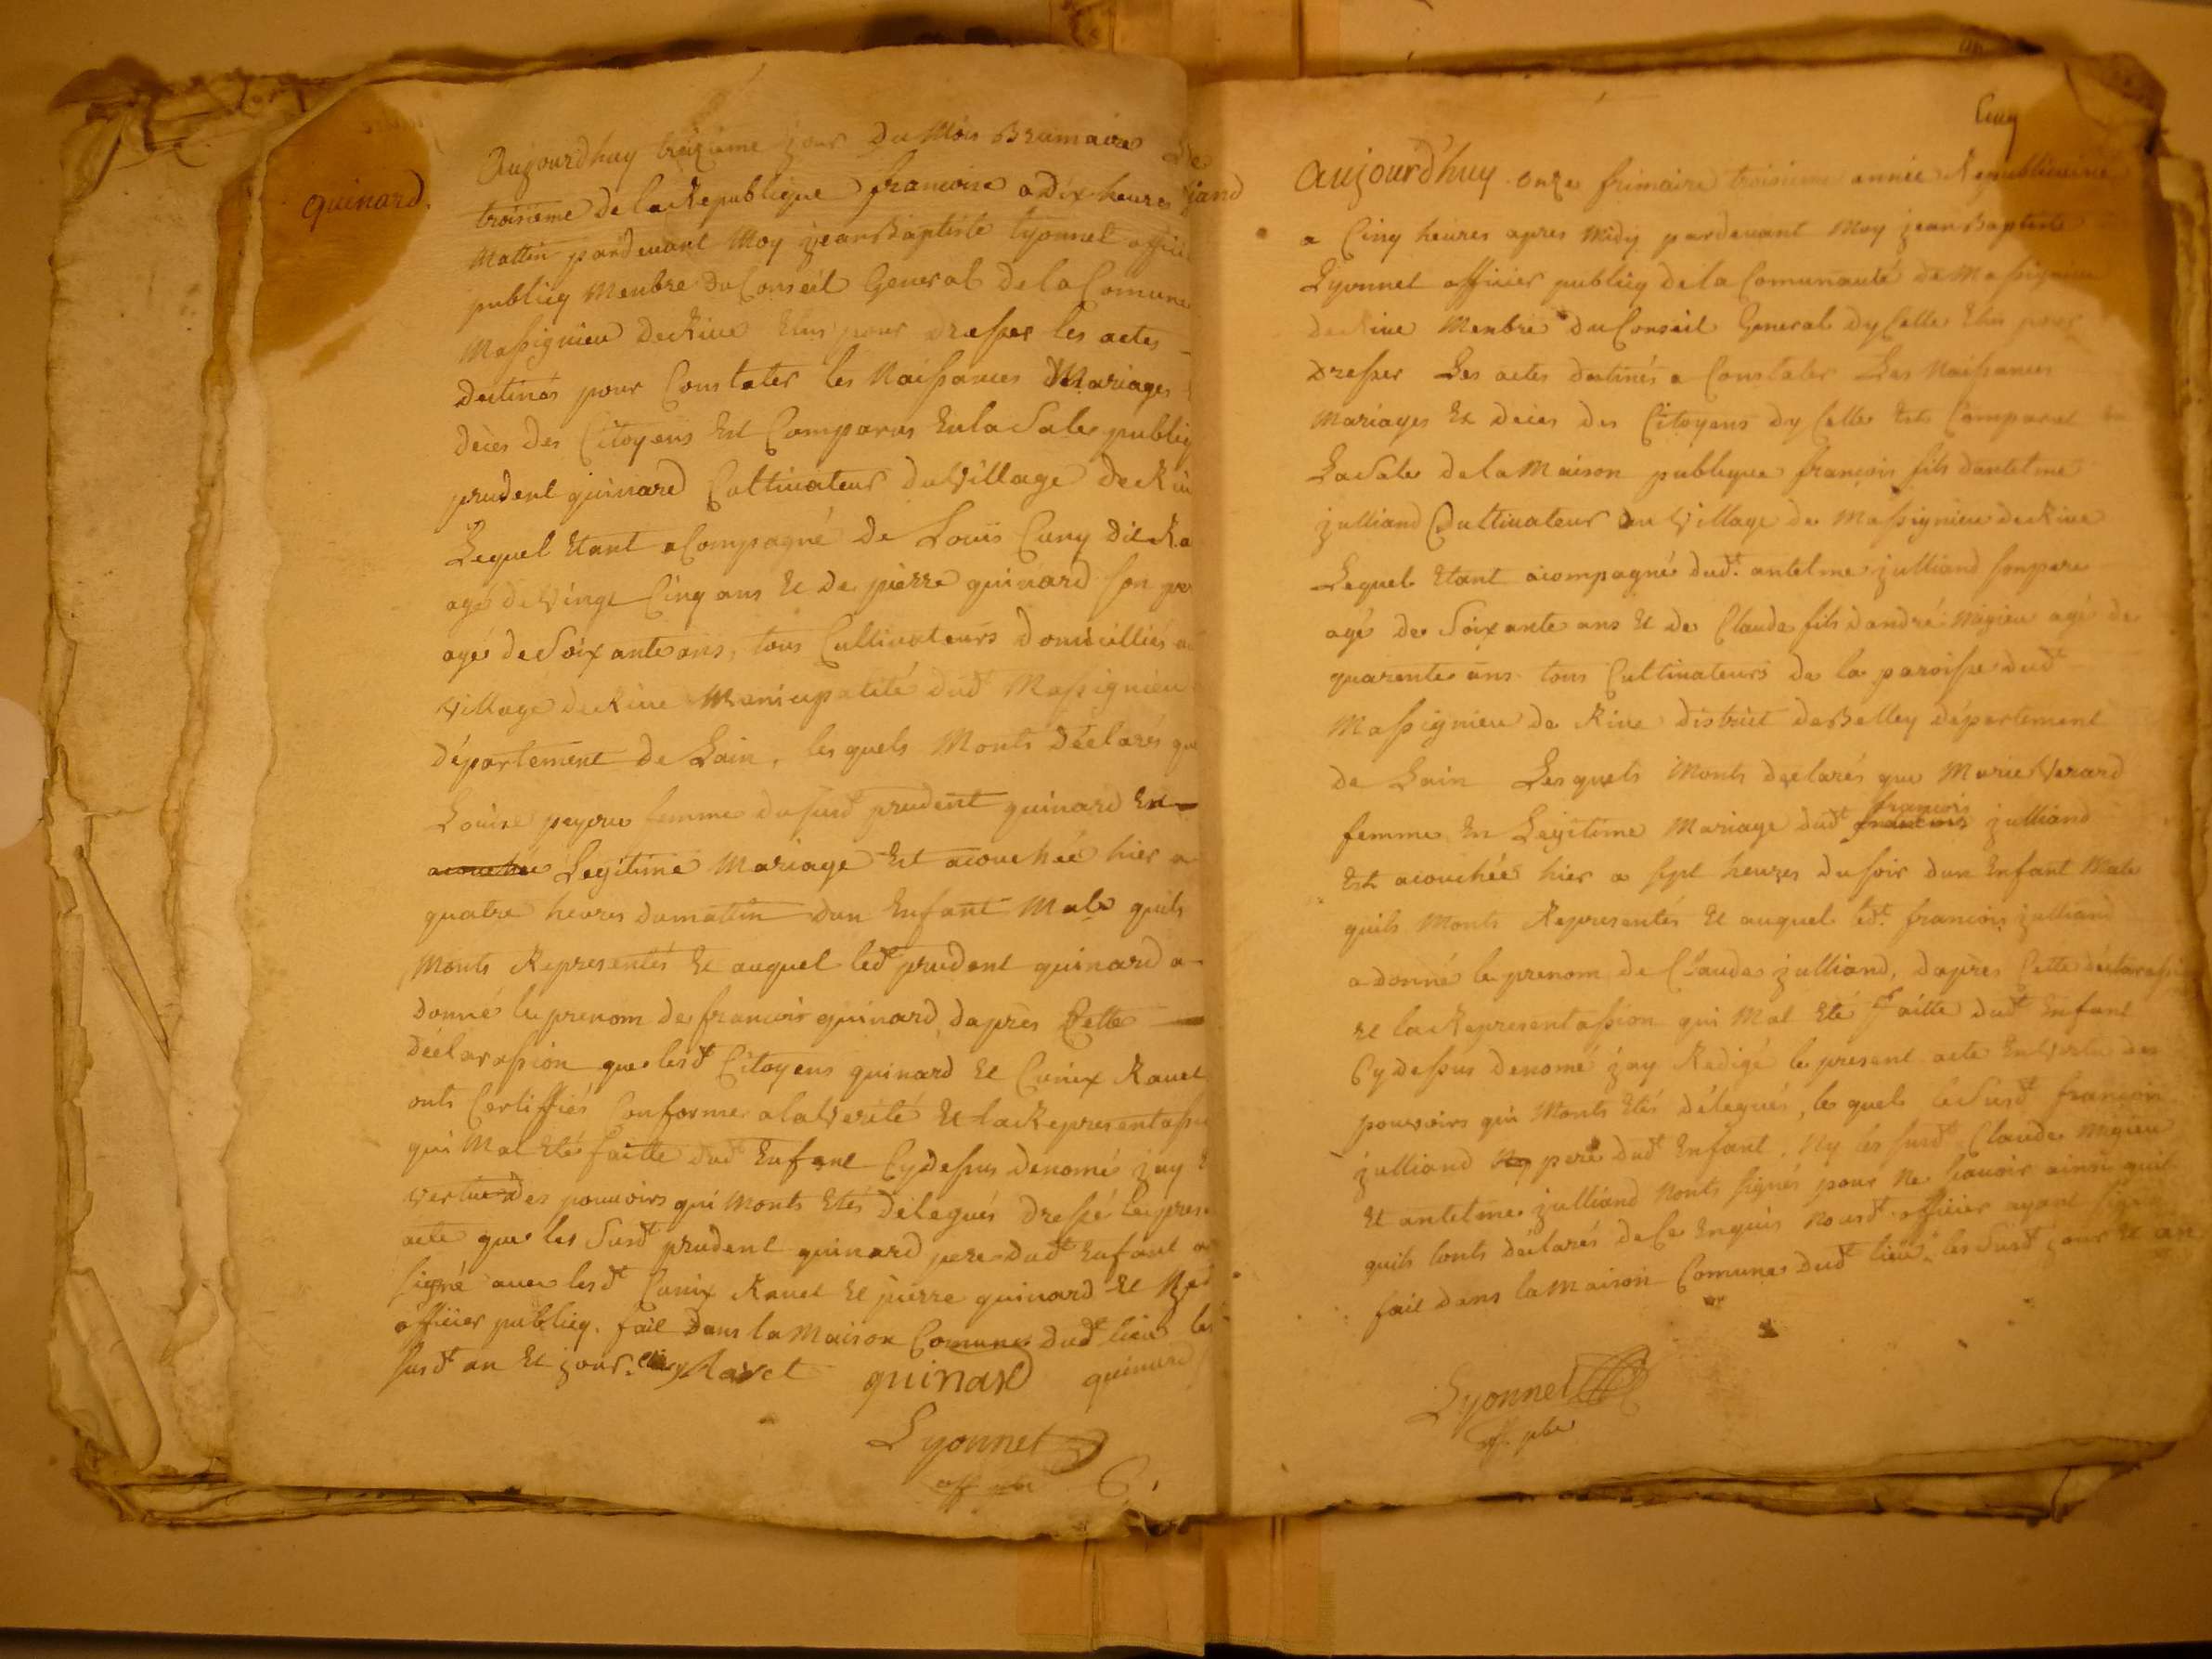 quinard.
Aujourdhuy treizieme jour Du Mois Brumaire De
troisieme de la Republique francoise a Dix heures
Mattin pardevant Moy jean Baptiste Lyonnet offici
publicq Menbre Du Conseil General de la Comune
Massignieu De Rive Elus pour dresser les actes
destinés pour Constater les Naissances Mariages
deces des Citoyens Est Comparus En la Sale publiq
prudent quinard Cultivateur du Village de Riv
Lequel Etant acompagné de Louis Cuny dit Ra
agé de Vingt Cinq ans Et de pierre quinard son pe
agé de Soixante ans, tous Cultivateurs domicilliés a
Village de Rive Municipalité dudt Massignieu
département de Lain, les quels Monts déclarés que
Louise peyru femme du susdt prudent quinard En
acouchée Legitime Mariage Est acouchée hier a
quatre heures du mattin dun Enfant Male quils
Monts Representés Et auquel ledt prudent quinard a
donné le prenom de francois quinard, dapres Cette
déclarassion que lesdt Citoyens quinard Et Cunix Ravet
onts Certiffiés Conforme a la Verité Et la Representassi
qui Mat Eté faitte dudt Enfant Cy dessus denomé jay E
vertue des pouvoirs qui Monts Etés délegués dressé le prese
acte que les Susdt prudent quinard pere dudt Enfant a
signé avec lesdt Cunix Ravet Et pierre quinard Et
officier publicq. fait Dans la Maison Comune dudt lieu les
susdt an Et jour. Ravet quinard quinard
Lyonnet
off
jand
Cinq
Aujourd'huy onze frimaire troisieme année Republicaine
a Cinq heures apres Midy pardevant Moy jean Baptiste
Lyonnet officier publicq de la Comunauté de Massignieu
de Rive Menbre du Conseil General dy Celle Elus pour
dresser Les actes destinés a Constater Les Naissances
Mariages Et deces des Citoyens dy Celle Est Comparut
La Sale de la Maison publique françois fils dantelme
julliand Cultivateur du Village de Massignieu de Rive
Lequel Etant acompagné dudt antelme julliand son pere
agé de Soixante ans Et de Claude fils dandré Migieu agé de
quarente ans tous Cultivateurs de la paroisse dudt
Massignieu de Rive district de Belley département
de Lain Les quels Monts déclarés que Marie Verard
femme En Legitime Mariage dudt francois francois julliand
Est acouchée hier a sept heures du soir dun Enfant Male
quils Monts Representés Et auquel ledt francois julliand
a donné le prenom de Claude julliand, dapres Cette déclarassi
Et la Representassion qui Mat Eté faitte dudt Enfant
Cy dessus denomé jay Redigé le present acte En Vertu des
pouvoirs qui Monts Etés délegués, les quels le Susdt francois
julliand Ny pere dudt Enfant, Ny les susdt Claude Migieu
Et antelme julliand Nonts signés pour Ne scavoir ainsi quil
quils lonts déclarés de Ce Enquis Nousdt officier ayant signé
fait dans la Maison Comune dudt lieu les Susdt jour Et an
Lyonnet
off. pbe